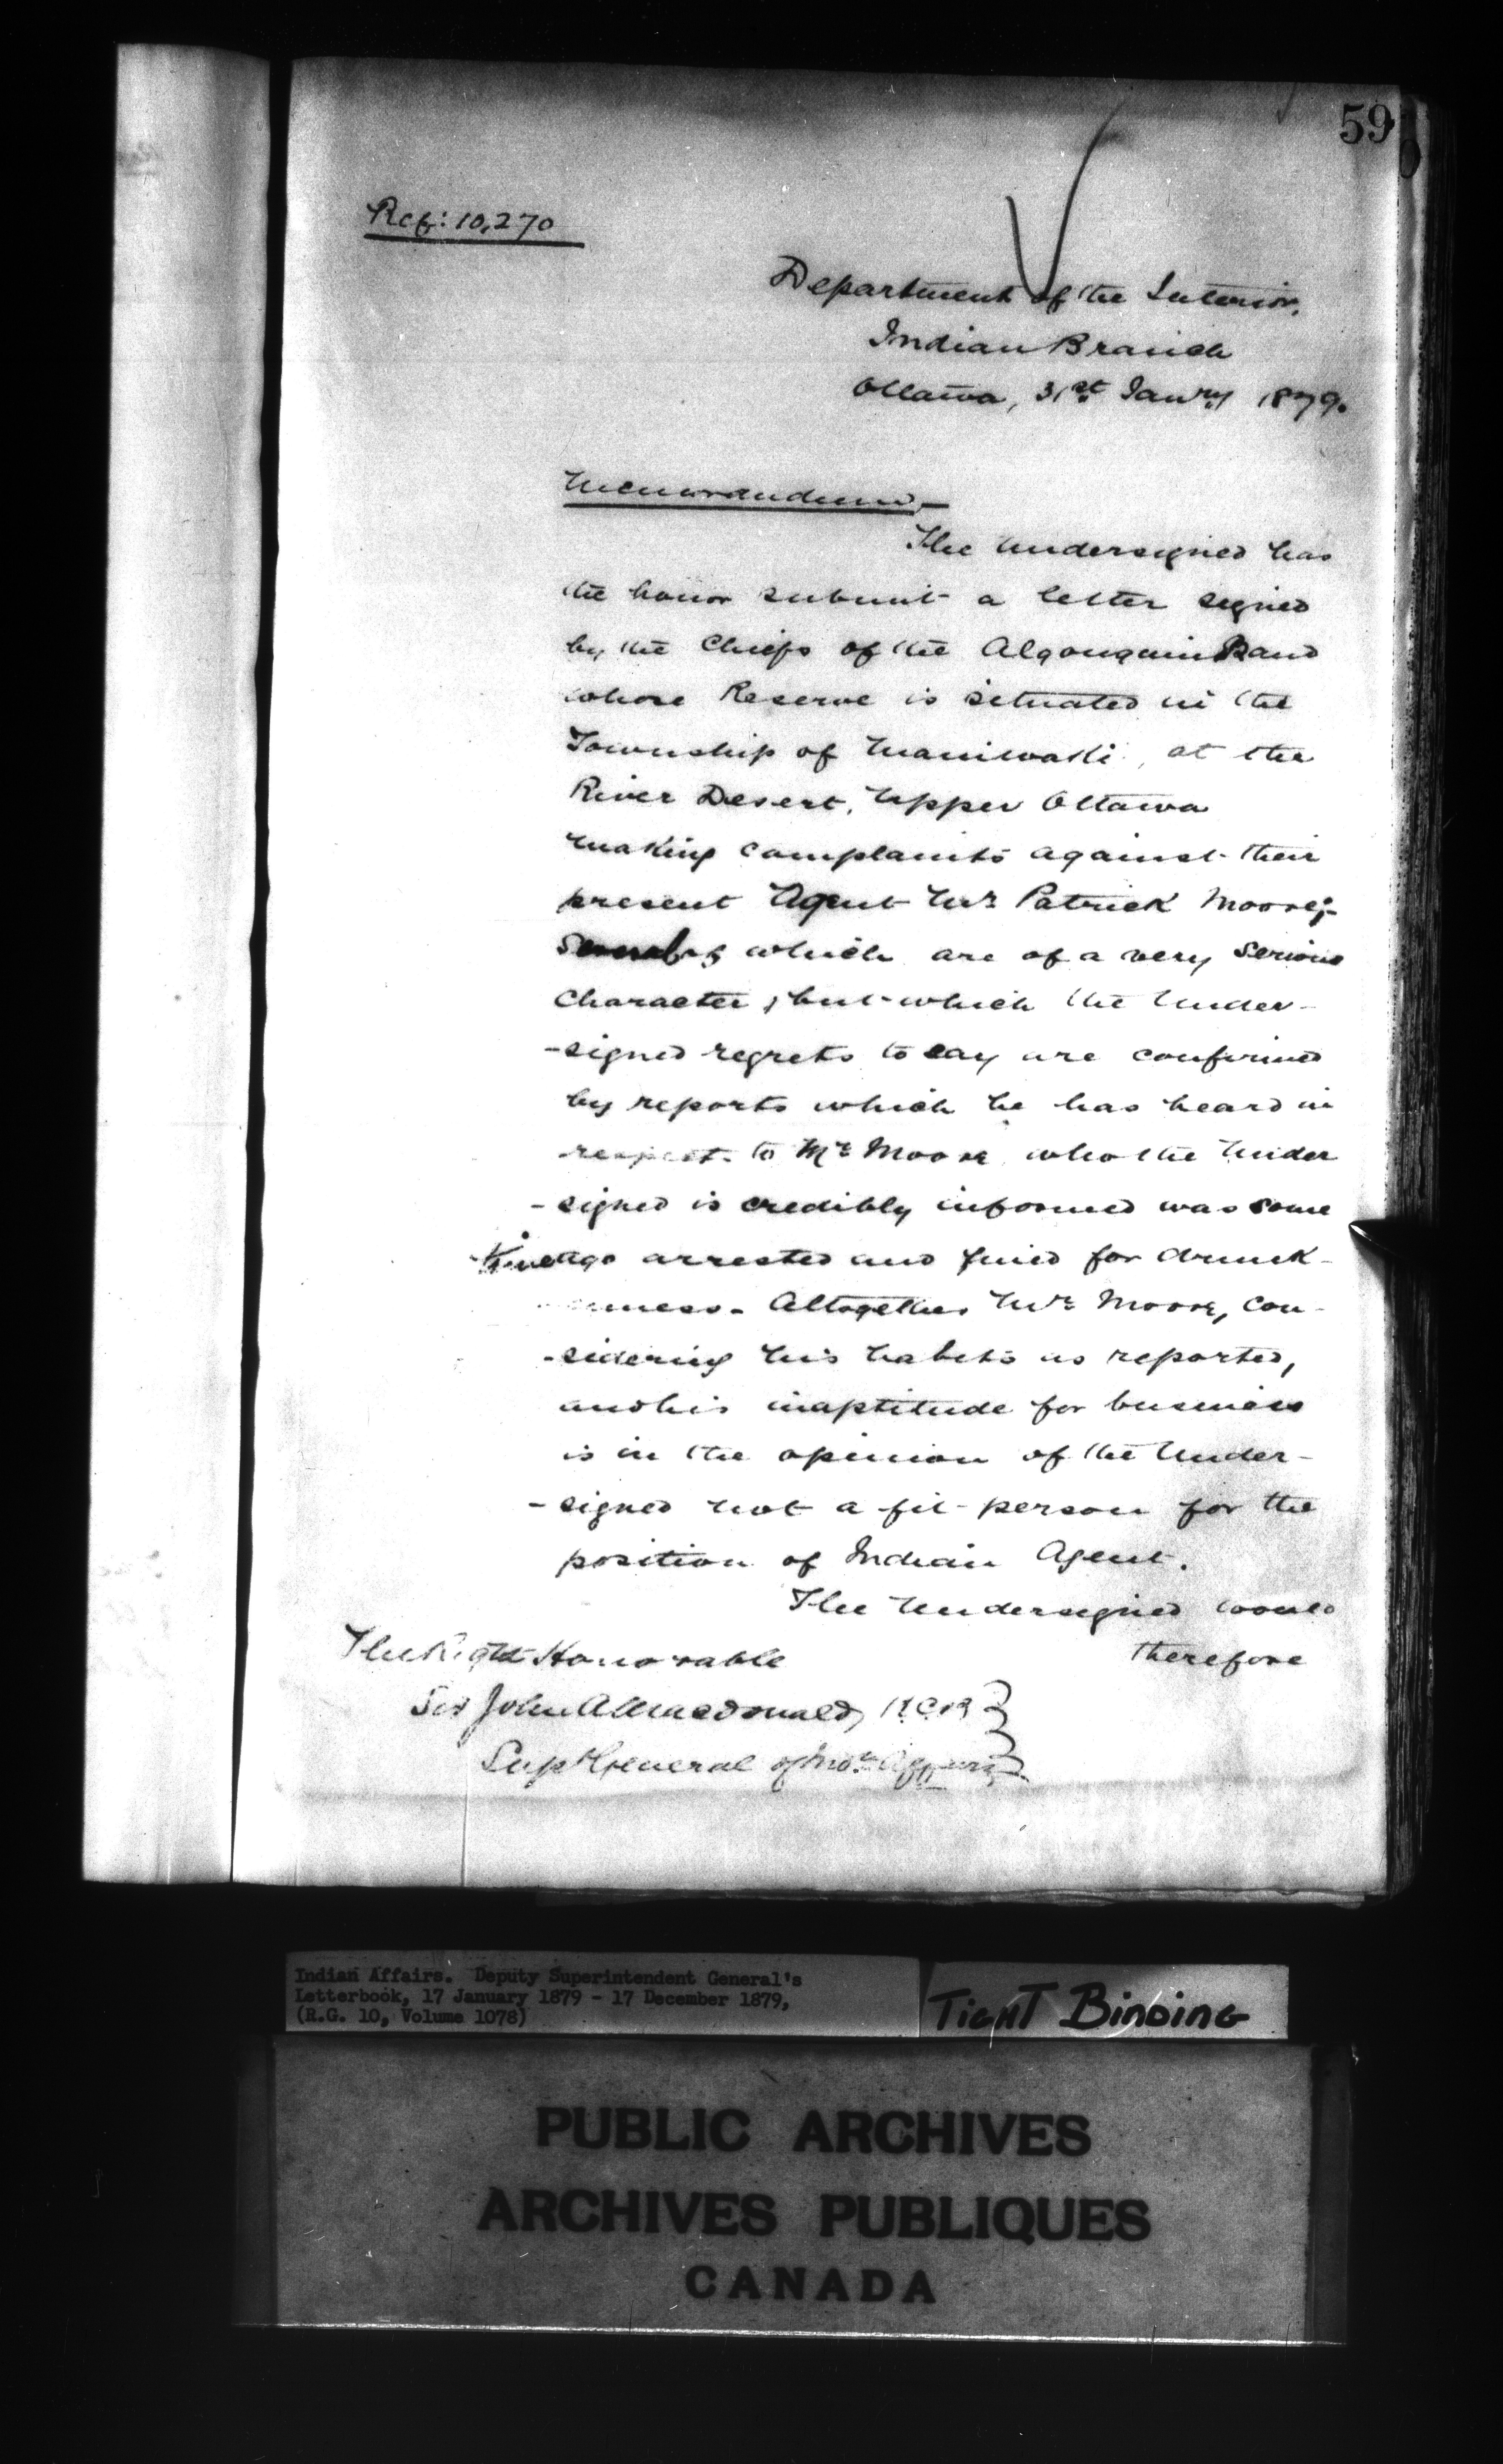 59
Ref: 10,270
Department of the Interior,
Indian Branch
Ottawa, 31st Janry 1879.
Memorandum,—
The Undersigned has
the honor submit a letter signed
by the Chiefs of the Algonquin Band
whose Reserve is situated in the
Township of Maniwaki, at the
River Desert, Upper Ottawa
making complaints against their
present Agent Mr Patrick Moore;-
which are of a very serious
Character; but which the Under-
-signed regrets to say are confirmed
by reports which he has heard in
respect to Mr Moore, who the Under
-signed is credibly informed was some
time ago arrested and fined for drunk-
-enness. Altogether Mr Moore, con-
-sidering his habits as reported,
and his inaptitude for business
is in the opinion of the Under-
-signed not a fit person for the
position of Indian Agent.
The Undersigned would
therefore
The Right Honorable
Sir John A Macdonald, K.C.B
Supt General of Indn Affairs
Indian Affairs. Deputy Superintendent General's
Letterbook, 17 January 1879 - 17 December 1879,
(R.G. 10, Volume 1078)
TIGHT BINDING
PUBLIC ARCHIVES
ARCHIVES PUBLIQUES
CANADA